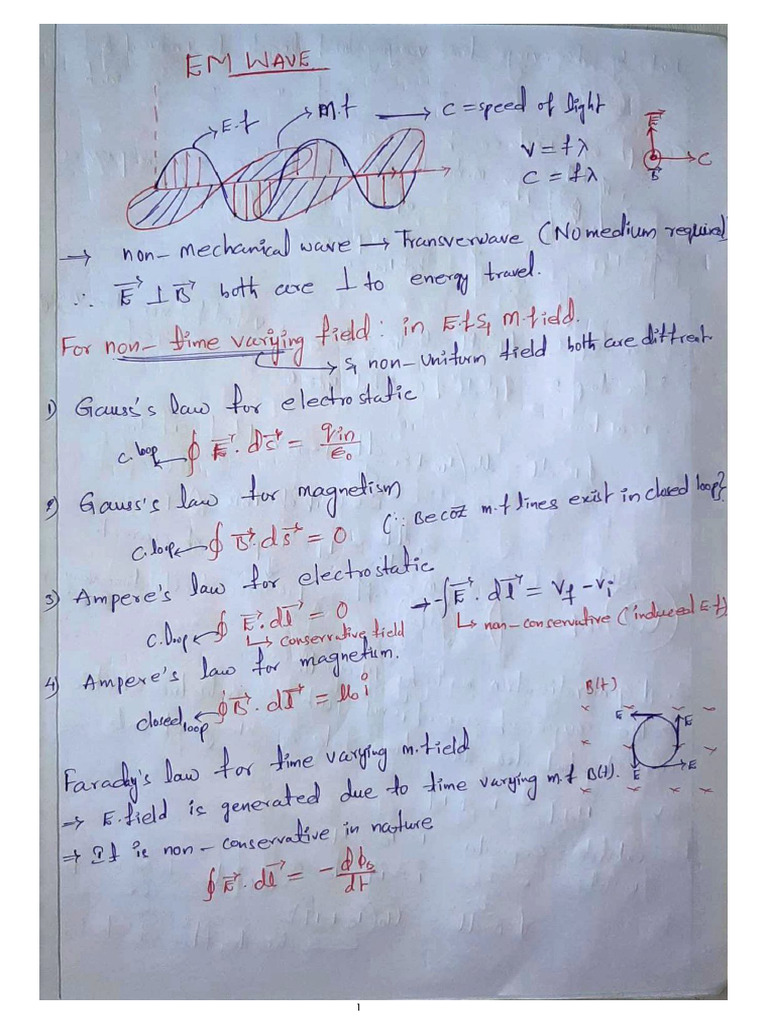 EM WAVE
E.f
M.f → C = speed of light
V = fλ
C = fλ
E⃗
C
B⃗
→ non-mechanical wave → Transverwave (No medium required)
∴ E⃗ ⊥ B⃗ both are ⊥ to energy travel.
For non-time varying field: in E.f & M.field.
→ & non-uniform field both are diffreat.
1) Gauss's law for electrostatic
c.loop ← ∮ E⃗. ds⃗ = qin/ε₀
2) Gauss's law for magnetism
c.loop ← ∮ B⃗. ds⃗ = 0 (∵ Becoz m.f lines exist in closed loop)
3) Ampere's law for electrostatic
c.loop ← ∮ E⃗. dl⃗ = 0 → -∫E⃗. dl⃗ = Vf - Vi
↳ conservative field ↳ non-conservative (induced E.f)
4) Ampere's law for magnetum.
closed loop ← ∮ B⃗. dl⃗ = μ₀ i
B(t)
E
E
E
E
Faraday's law for time varying m.field
→ E.field is generated due to time varying m.f B(t).
⇒ It is non-conservative in nature
∮ E⃗. dl⃗ = - dϕB/dt
1